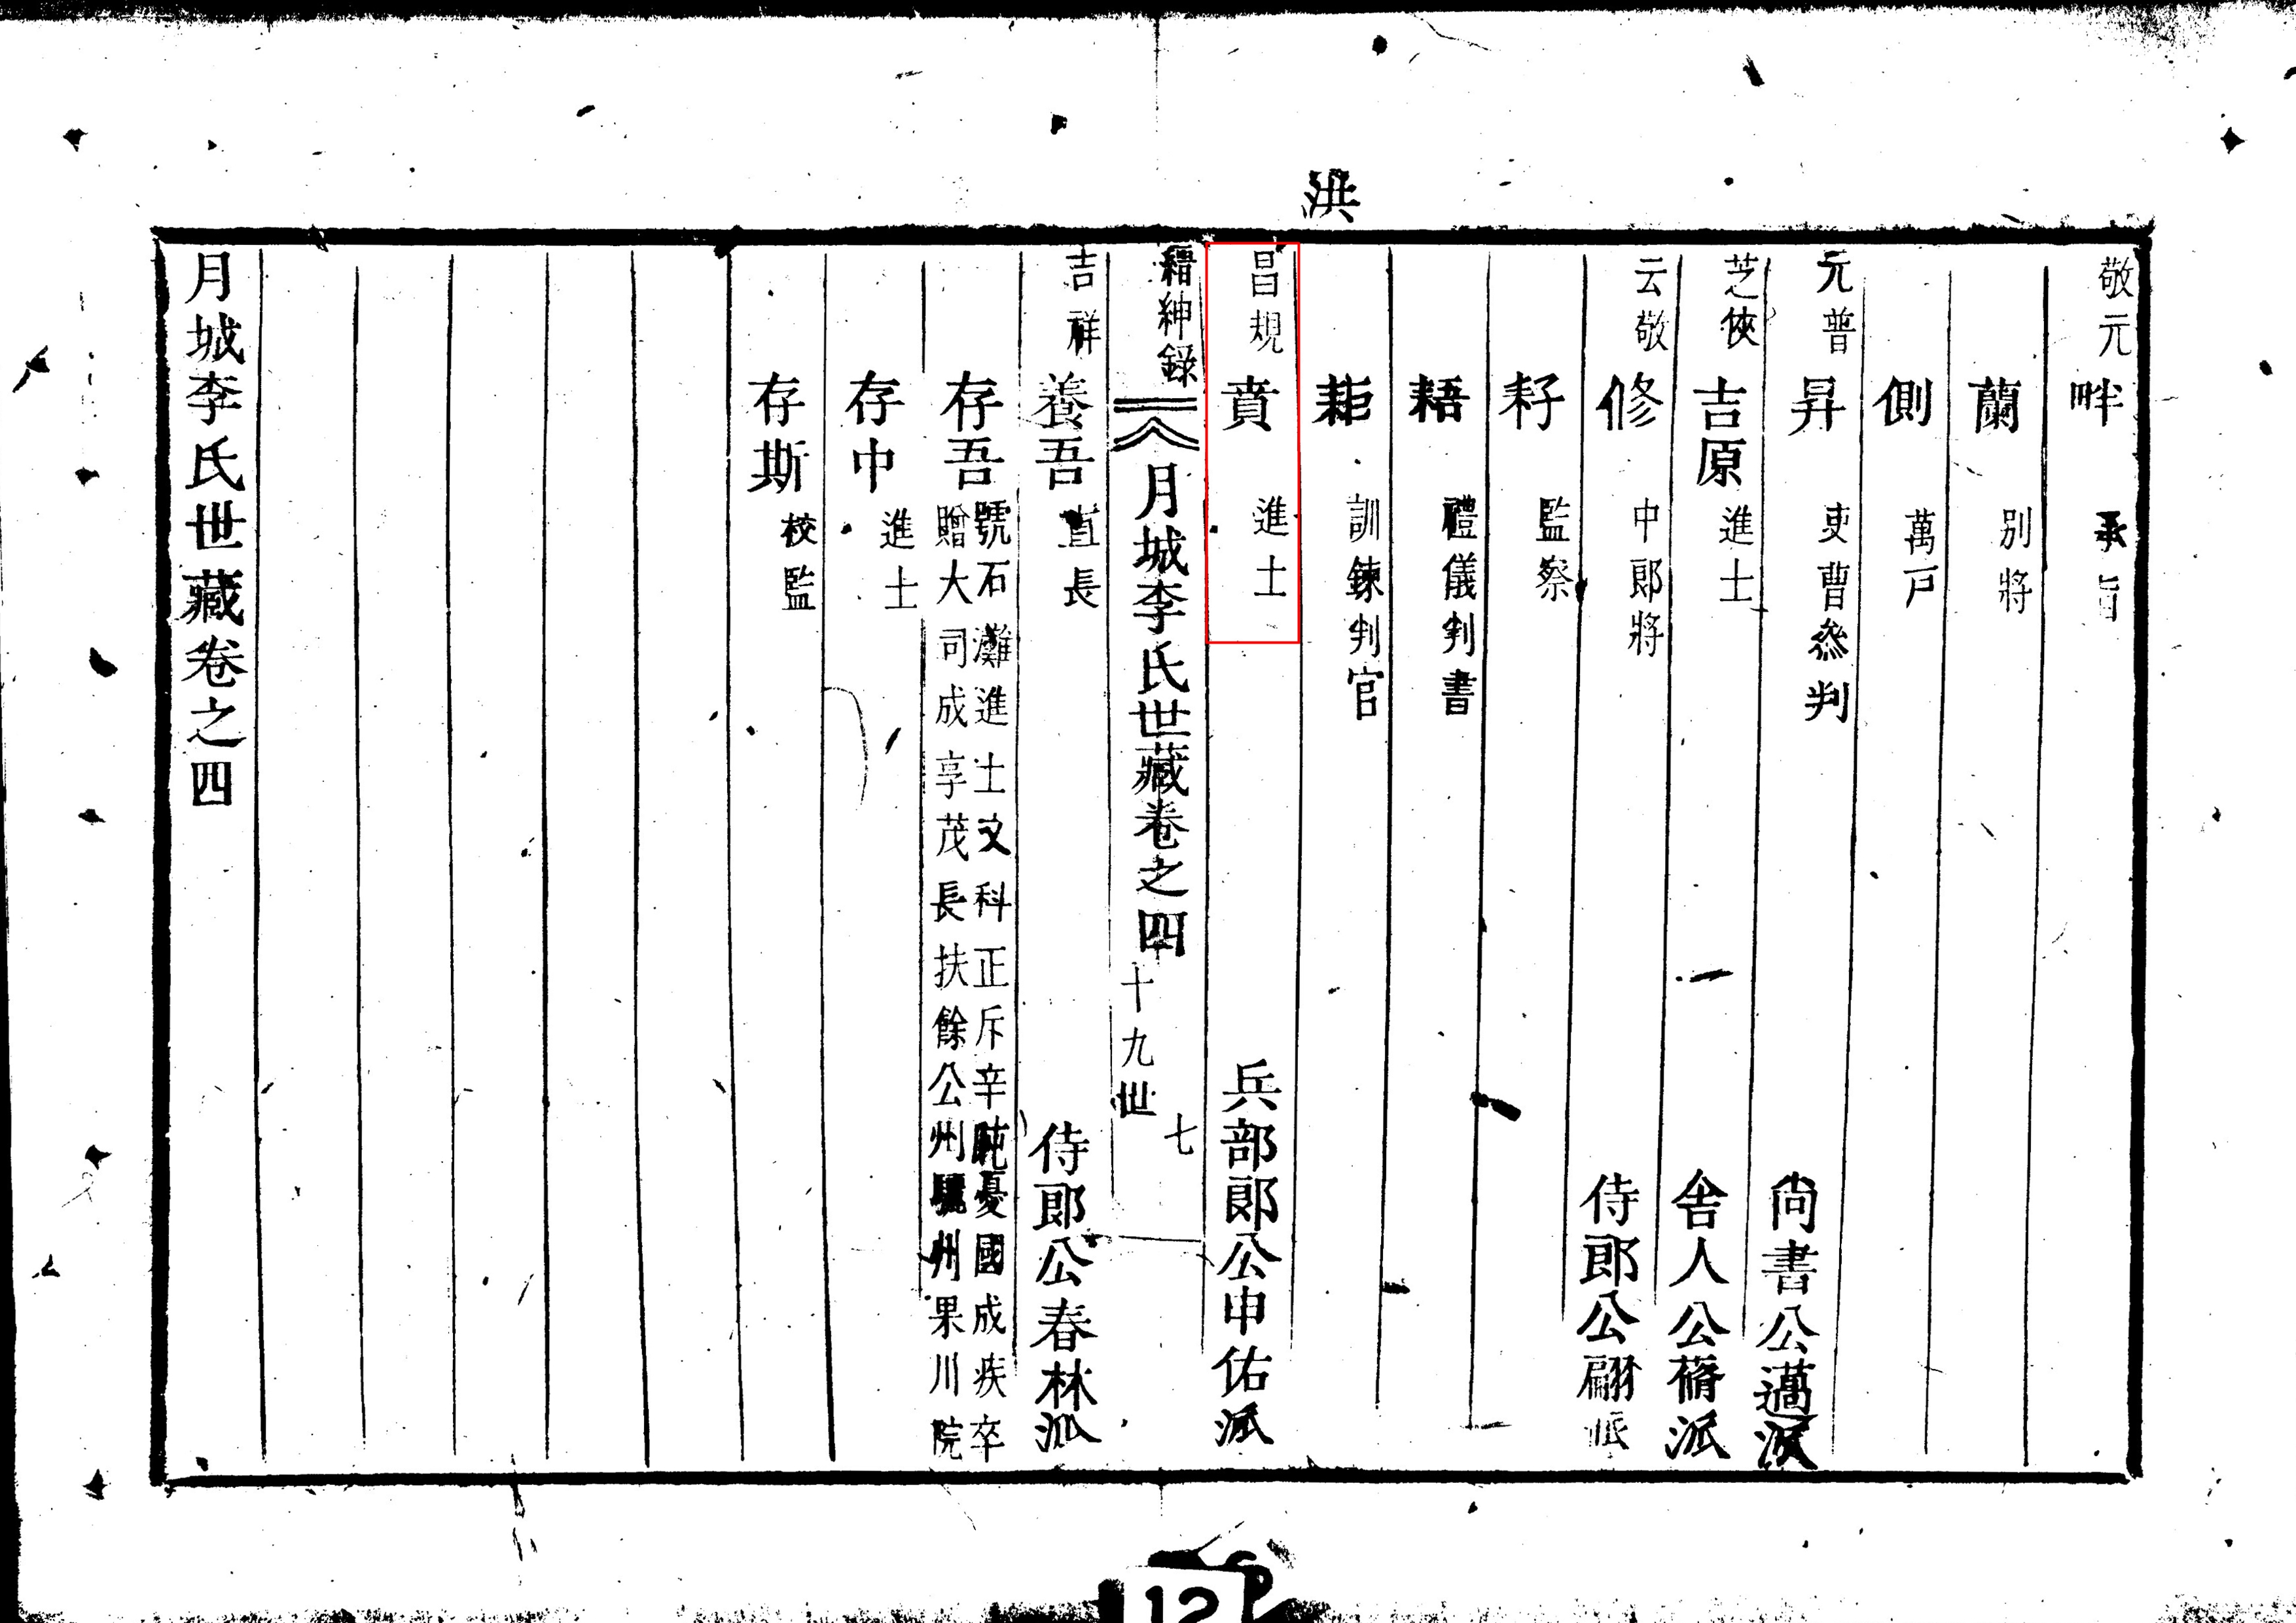 洪
敬元 畔 承旨
蘭 別將
側 萬戶
元普 昇 吏曹叅判 尙書公邁派
芝俠 吉原 進士 舍人公蓨派
云敬 修 中郞將 侍郞公翮派
耔 監察
䎸 禮儀判書
耟 訓鍊判官
昌規 賁 進士 兵部郞公申佑派
縉紳錄 月城李氏世藏卷之四 十九世 七
吉祥 養吾 直長 侍郞公春林派
存吾 號石灘進士文科正斥辛旽憂國成疾卒
贈大司成享茂長扶餘公州驪州果川院
存中 進士
存斯 校監
月城李氏世藏卷之四
12